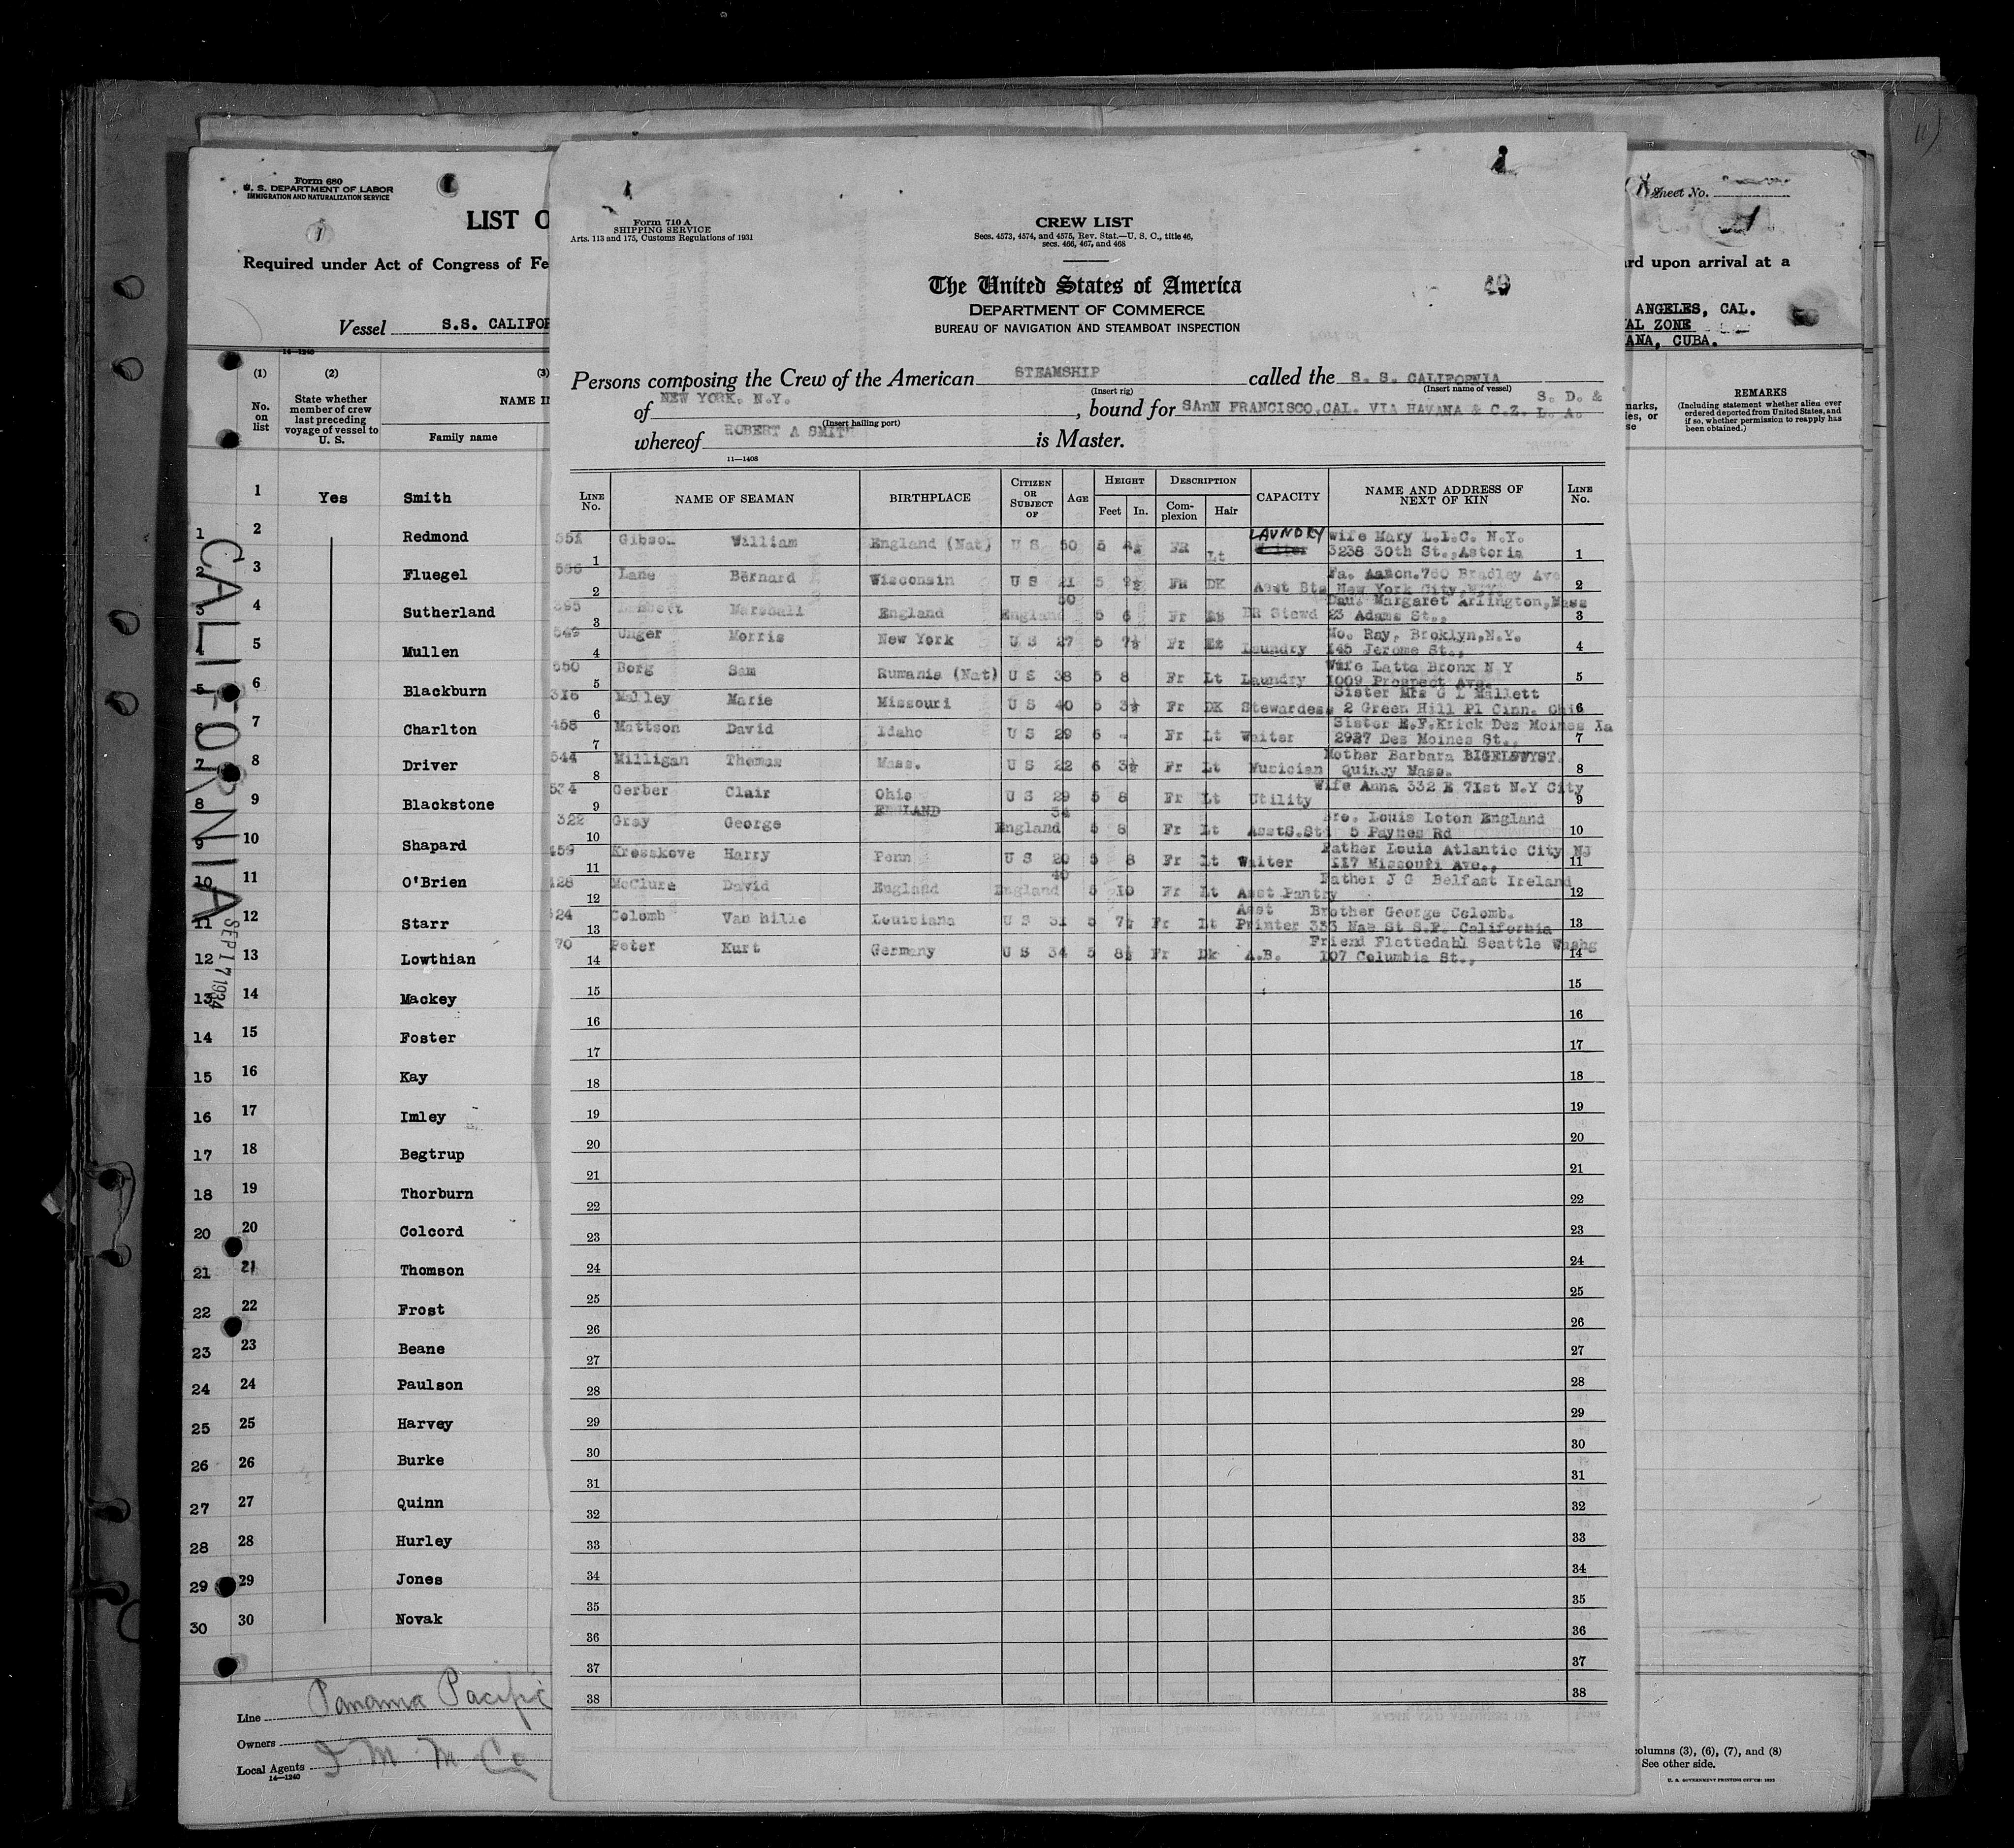 Form 680
U. S. DEPARTMENT OF LABOR
IMMIGRATION AND NATURALIZATION SERVICE
LIST O
Required under Act of Congress of Fe
Vessel S.S. CALIFOR
14—1240
(1) (2) (3)
No. on list
State whether member of crew last preceding voyage of vessel to U. S.
NAME I
Family name
1 Yes Smith
1 2 Redmond
2 3 Fluegel
3 4 Sutherland
4 5 Mullen
5 6 Blackburn
6 7 Charlton
7 8 Driver
8 9 Blackstone
9 10 Shapard
10 11 O'Brien
11 12 Starr
12 13 Lowthian
13 14 Mackey
14 15 Foster
15 16 Kay
16 17 Imley
17 18 Begtrup
18 19 Thorburn
20 20 Colcord
21 21 Thomson
22 22 Frost
23 23 Beane
24 24 Paulson
25 25 Harvey
26 26 Burke
27 27 Quinn
28 28 Hurley
29 29 Jones
30 30 Novak
CALIFORNIA
SEP 17 1934
Line Panama Pacific
Owners
Local Agents I M M Co
14—1240
Form 710 A
SHIPPING SERVICE
Arts. 113 and 175, Customs Regulations of 1931
CREW LIST
Secs. 4573, 4574, and 4575, Rev. Stat.—U. S. C., title 46,
secs. 466, 467, and 468
The United States of America
DEPARTMENT OF COMMERCE
BUREAU OF NAVIGATION AND STEAMBOAT INSPECTION
Persons composing the Crew of the American STEAMSHIP called the S. S. CALIFORNIA
(Insert rig) (Insert name of vessel)
of NEW YORK. N.Y., bound for SAnN FRANCISCO,CAL. VIA HAVANA & C.Z. S. D. & L. A.
(Insert hailing port)
whereof ROBERT A SMITH is Master.
11—1408
LINE No. NAME OF SEAMAN BIRTHPLACE CITIZEN OR SUBJECT OF AGE HEIGHT Feet In. DESCRIPTION Complexion Hair CAPACITY NAME AND ADDRESS OF NEXT OF KIN LINE No.
551 1 Gibson William England (Nat) U S 50 5 FR Lt LAUNDRY Wife Mary L.I.C. N.Y. 3238 30th St.,Astoria 1
2 Lane Bernard Wisconsin U S 21 5 9½ FR DK Asst Fa. Aaron.760 Bradley Ave New York City,N.Y. 2
395 3 Marshall England England 50 5 6 Fr DR Stewd Dau. Margaret Arlington,Mass 23 Adams St., 3
4 Unger Morris New York U S 27 5 7½ Fr Laundry Mo. Ray, Broklyn,N.Y. 145 Jerome St., 4
550 5 Borg Sam Rumania (Nat) U S 38 5 8 Fr Lt Laundry Wife Latta Bronx N Y 1009 Prospect Ave. 5
316 6 Malley Marie Missouri U S 40 5 3½ Fr DK Stewardess Sister Mrs G L Mallett 2 Green Hill Pl Cinn. Ohio 6
458 7 Mattson David Idaho U S 29 6 - Fr Lt Waiter Sister E.F.Krick Des Moines Ia 2927 Des Moines St., 7
544 8 Milligan Thomas Mass. U S 22 6 3½ Fr Lt Musician Mother Barbara Quincy Mass. 8
534 9 Gerber Clair Ohio U S 29 5 8 Fr Lt Utility Wife Anna 332 E 71st N.Y City 9
322 10 Gray George ENGLAND England 34 5 8 Fr Lt AsstS.Std Bro. Louis Loton England 5 Paynes Rd 10
459 11 Kresskove Harry Penn U S 20 5 8 Fr Lt Waiter Father Louis Atlantic City NJ 117 Missouri Ave., 11
428 12 McClure David England England 40 5 10 Fr Lt Asst Pantry Father J G Belfast Ireland 12
324 13 Colomb Van hille Louisiana U S 31 5 7½ Fr Lt Asst Printer Brother George Colomb. 333 Nae St S.F. California 13
70 14 Peter Kurt Germany U S 34 5 8½ Fr Dk A.B. Friend Flottedahl Seattle Washg 107 Columbia St., 14
15 15
16 16
17 17
18 18
19 19
20 20
21 21
22 22
23 23
24 24
25 25
26 26
27 27
28 28
29 29
30 30
31 31
32 32
33 33
34 34
35 35
36 36
37 37
38 38
Sheet No.
rd upon arrival at a
ANGELES, CAL.
AL ZONE
ANA, CUBA.
REMARKS
(Including statement whether alien ever ordered deported from United States, and if so, whether permission to reapply has been obtained.)
olumns (3), (6), (7), and (8)
See other side.
U. S. GOVERNMENT PRINTING OFFICE: 1933